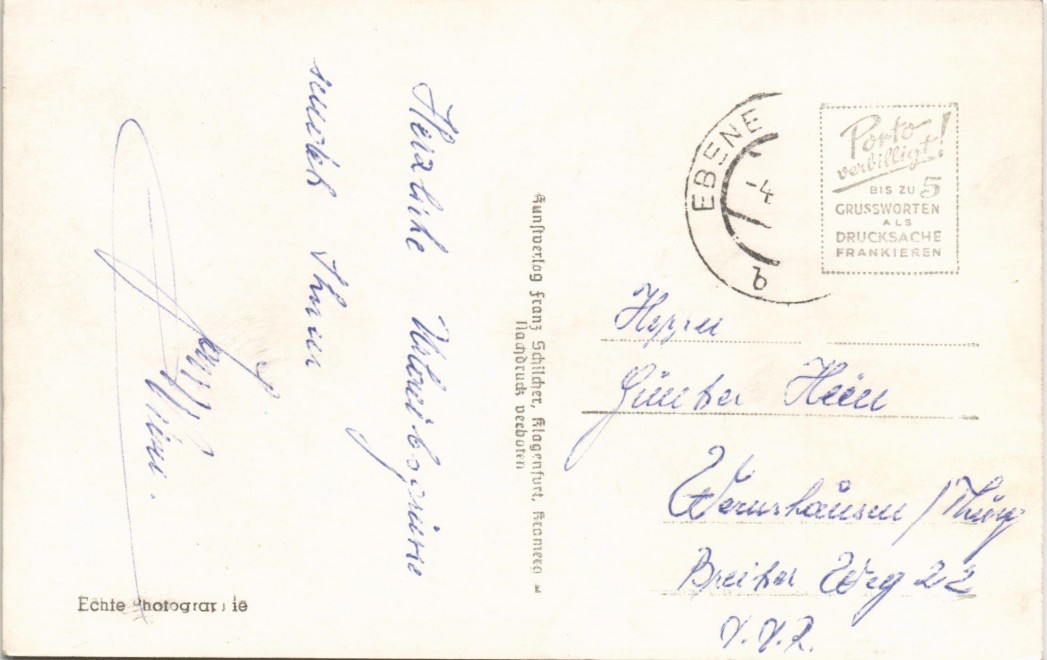 Herzliche Urlaubsgrüsse
sendet Ihnen
Mimi.
Echte Photographie
Kunstverlag Franz Schilcher, Klagenfurt, Kramerg
Nachdruck verboten
EBENE
-4
b
Porto
verbilligt!
BIS ZU 5
GRUSSWORTEN
ALS
DRUCKSACHE
FRANKIEREN
Herrn
Günter Hein
Wernshausen/Thürg
Breiter Weg 22